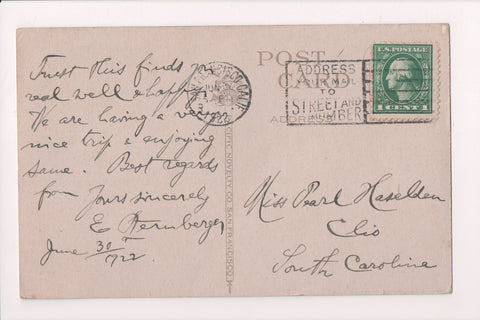 POST CARD
ADDRESS
YOUR MAIL
TO
STREET AND
NUMBER
U.S. POSTAGE
1 CENT 1
ADDRESS
Trust this finds you
real well & happy.
We are having a very
nice trip & enjoying
same. Best regards
from Yours sincerely
E
June 30
1922
PACIFIC NOVELTY CO. SAN FRANCISCO
Miss Pearl Haselden
Clio
South Carolina